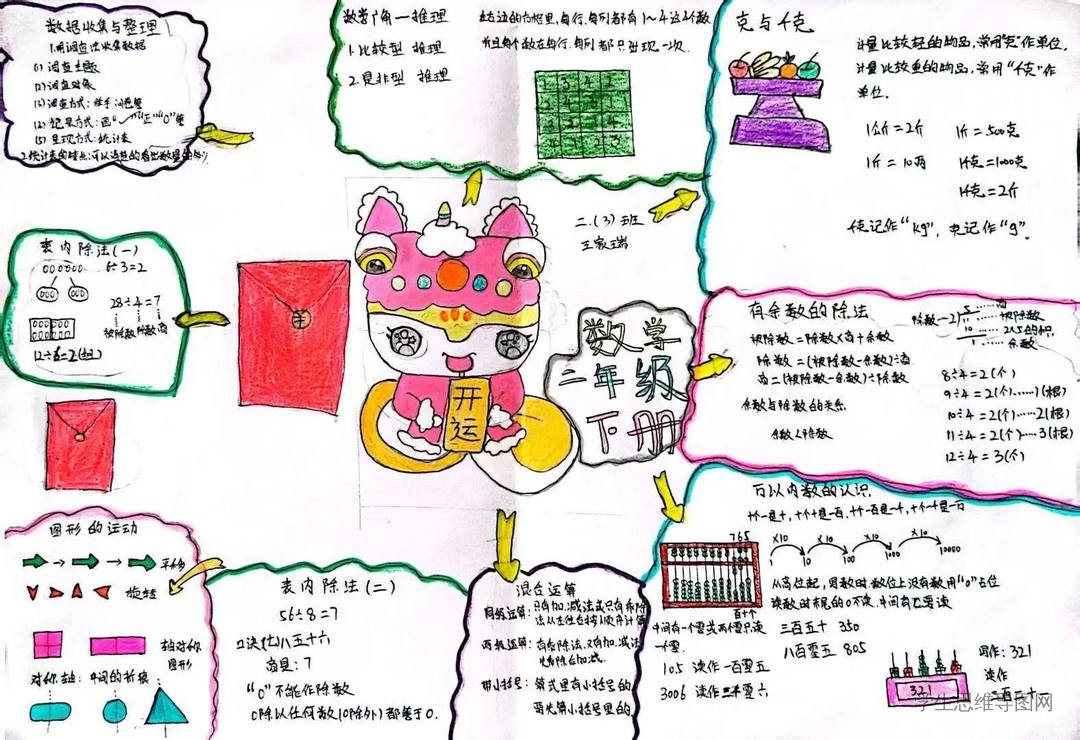 数据收集与整理
1.用调查法收集数据
(1)调查主题
(2)调查对象
(3)调查方式：举手、问卷等
(5)呈现方式：统计表
数学广角一推理
1.比较型 推理
2.是非型 推理
在右边的方格里，每行、每列都有1～4这4个数
并且每个数在每行、每列都只出现一次.
克与千克
计量比较轻的物品，常用"克"作单位.
计量比较重的物品，常用"千克"作
单位.
1公斤=2斤 1斤=500克
1斤=10两 1千克=1000克
1千克=2斤
千克记作"kg"，克记作"g".
二.(3)班
王家瑞
表内除法(一)
6÷3=2
28÷4=7
被除数 除数 商
12÷6=2(组)
开运
数学
二年级
下册
有余数的除法
被除数=除数×商+余数
除数=(被除数-余数)÷商
商=(被除数-余数)÷除数
余数与除数的关系
余数<除数
8÷4=2(个)
9÷4=2(个)……1(根)
10÷4=2(个)……2(根)
11÷4=2(个)……3(根)
12÷4=3(个)
图形的运动
平移
旋转
轴对称
图形
对称轴：中间的折痕
表内除法(二)
56÷8=7
口诀(七)八五十六
商是：7
"0"不能作除数
0除以任何数(0除外)都等于0.
混合运算
同级运算：只有加、减法或只有乘除
法从左往右按顺序计算
带小括号：算式里有小括号的
要先算小括号里的
万以内数的认识.
个一是十，十个十是一百，十个一百是一千，十个一千是一万
×10 ×10 ×10 ×10
1 10 100 1000 10000
765
百十个
从高位起，写数时数位上没有数用"0"占位
中间有一个零或两个零只读
一个零.
105 读作一百零五
3006 读作三千零六
三百五十 350
八百零五 805
321
写作：321
读作
三百二十一
学生思维导图网